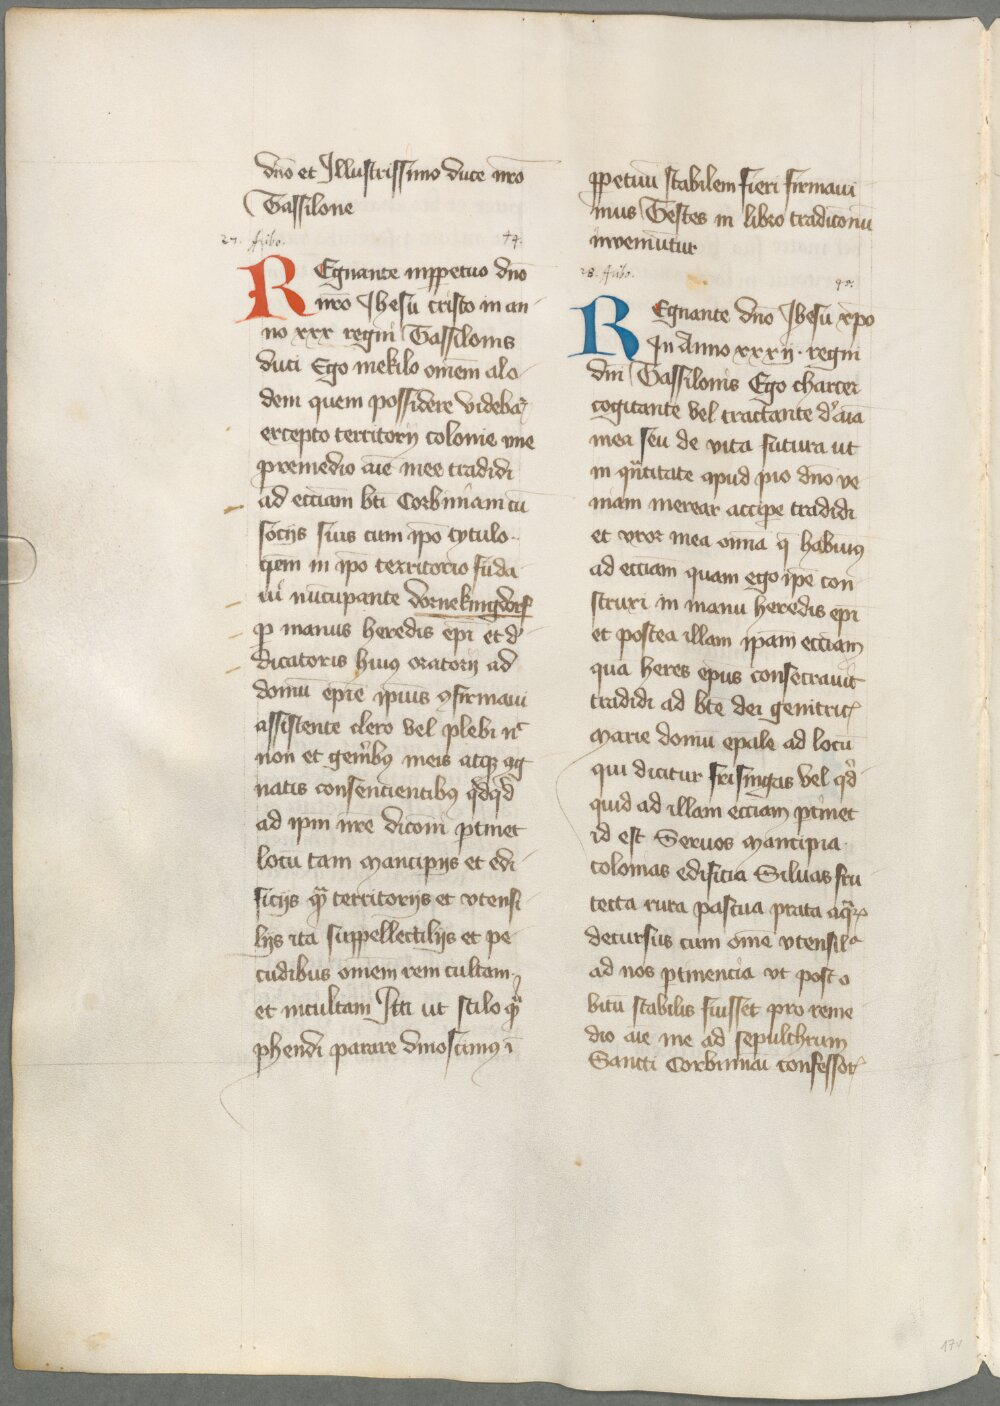 dno et Illustrissimo duce nro
Tassilone
27. Febo. 49.
REgnante inppetuo dno
nro Jhesu cristo in an
no xxx regni Tassilonis
duci Ego mekilo omem alo
dem quem possidere videbar
excepto territorij colonie vne
premedio aie mee tradidi
ad ecciam bti Corbiniam cu
socijs suis cum ipo tytulo
quem in ipo territorio funda
ui nucupante dornekingdorf
p manus heredis epi et d
dicatoris huius oratorij ad
domu epie ipius 9firmaui
assistente clero vel plebi nc
non et genibus meis atque ag
natis consencientibus qdqd
ad ipm iure dicom ptinet
locu tam mancipijs et edi
ficijs qua territorijs et vtensi
lijs ita suppellectilijs et pe
cudibus omem rem cultam
et incultam Itti ut stilo qua
phendi parare dinoscimus i
ppetuu stabilem fieri firmaui
mus Testes in libro traditonu
inveniutur
28. Febo. 90.
REgnante dno Jhesu xpo
In Anno xxxij regni
dni Tassilonis Ego charcei
cogitante vel tractante d aia
mea seu de vita futura ut
in quatitate apud pio dno ve
niam merear accipe tradidi
et vxor mea omia q habuius
ad ecciam quam ego ipe con
struxi in manu heredis epi
et postea illam ipam ecciam
qua heres epus consecrauit
tradidi ad bte dei genitric
Marie domu epale ad locu
qui dicitur frisingas vel qd
quid ad illam ecciam ptinet
id est Seruos Mancipia
colonias edificia Siluas fru
tecta rura pascua prata aquar
decursus cum ome vtensil
ad nos ptinencia vt post o
bitu stabilis fuisset pro reme
dio aie me ad sepulchrum
Sancti Corbiniai confessor
174